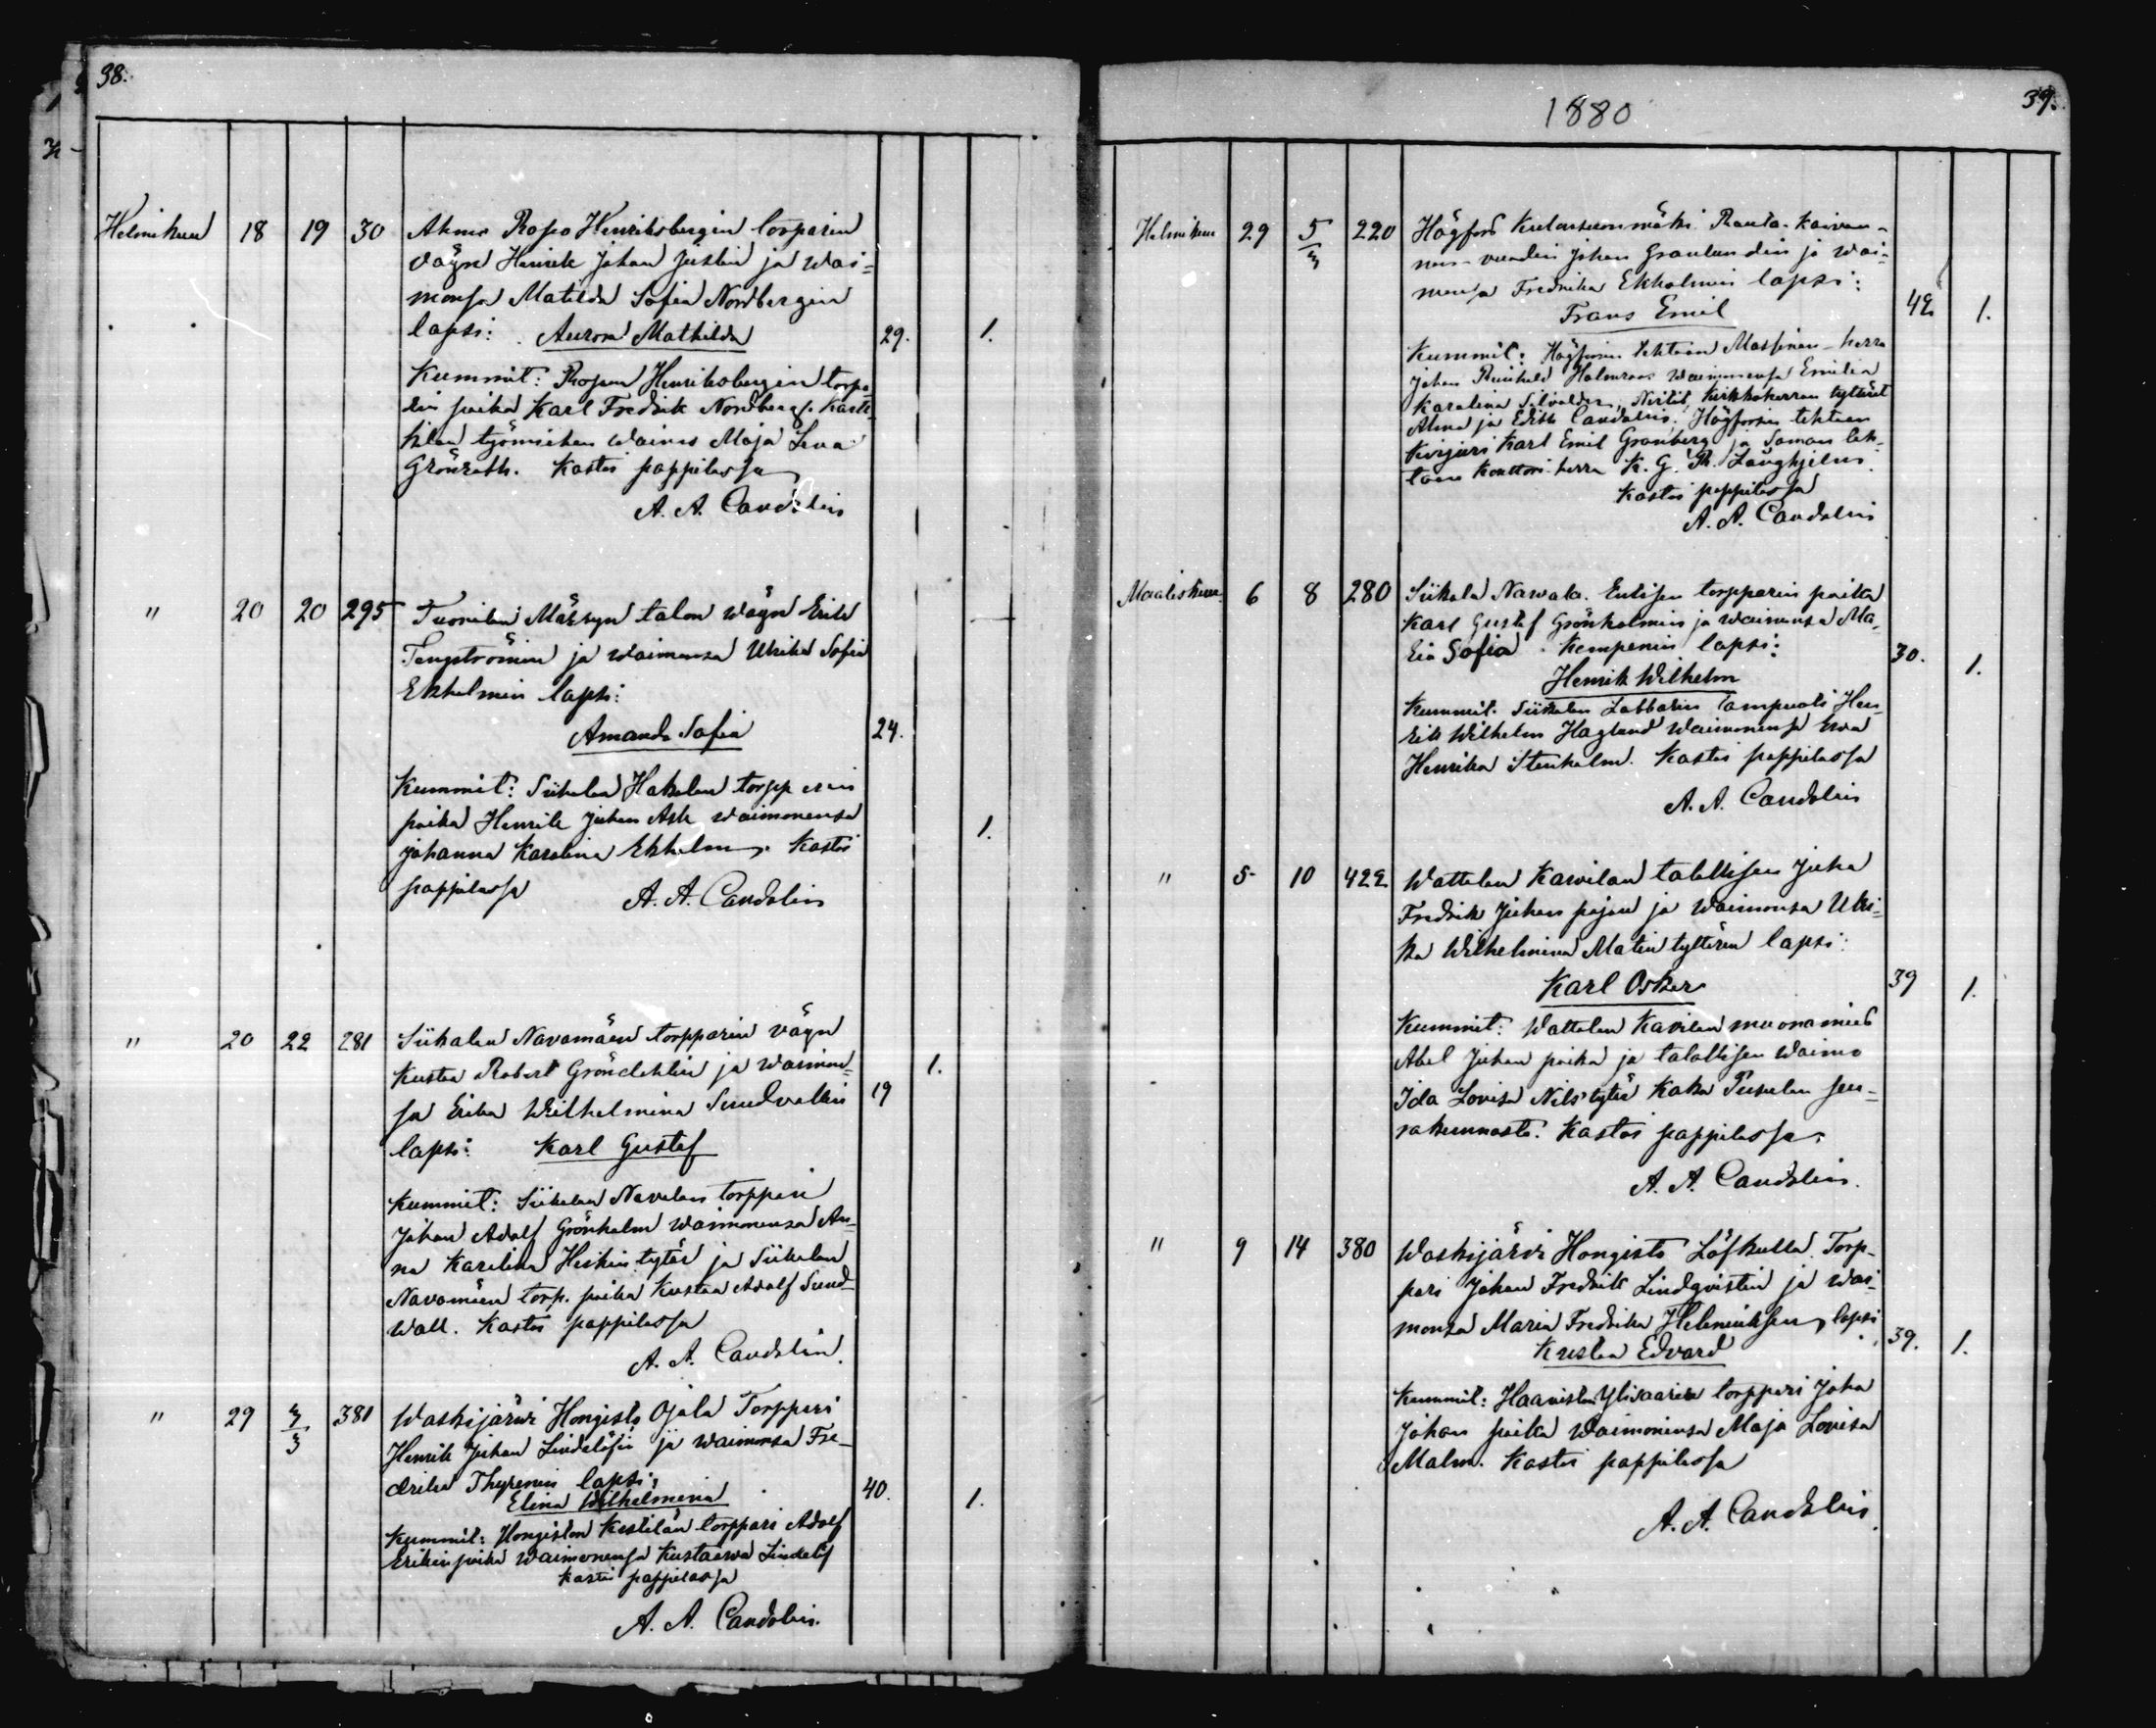 38.
Helmikuu 18 19 30 Ahmo Ropo Henriksbergin torparin
vägn Henrik Johan Justin ja wai=
monsa Matilda Sofia Nordbergin
lapsi: Aurora Mathilda 29. 1.
Kummit: Ropon Henriksbergin torpa
rin poika Karl Fredrik Nordberg ja Kark
kilan työmiehen waimo Maja Lena
Grönroth. Kasti pappilassa
A. A. Candolin
" 20 20 295 Tuorilan talon wägn Erik
Tengströmin ja waimonsa Ulrika Sofia
Ekholmin lapsi:
Amanda Sofia 24.
Kummit: Siikalan Hakalan torpparin
poika Henrik Juhan Ask waimonensa
Johanna Karolina Ekholm. Kasti 1.
pappilassa A. A. Candolin
" 20 22 281 Siikalan Navamäen torpparin vägn
Kustaa Robert Gröndahlin ja waimon= 1.
sa Erika Wilhelmina Sundvallin 19
lapsi: Karl Gustaf
Kummit: Siikalan Navalan torppari
Johan Adolf Grönholm waimonensa An=
na Karolina Heikin tytär ja Siikalan
Navamäen torp. poika Kustaa Adolf Sund=
wall. Kasti pappilassa
A. A. Candolin.
" 29 3/3 381 Waskijärwi Hongisto Ojala Torppari
Henrik Juhan Lindelöfin ja waimonsa Fre=
drika Thyrenin lapsi:
Elina Wilhelmina 40. 1.
Kummit: Hongiston Kestilän torppari Adolf
Erikinpoika waimonensa Kustaawa Lindelöf
Kasti pappilassa
A. A. Candolin.
1880
39.
Helmikuu 29 5/3 220 Högfors Kulonsuonmäki Rauta-kaivan-
non-voudin Johan Granlundin ja wai-
monsa Fredrika Ekholmin lapsi:
Frans Emil 42 1.
Kummit: Högforsin tehtaan Massinan-herra
Johan Reinhold Holmroos waimonensa Emilia
Karolina Silvander, Neitit, Kirkkoherran tyttäret
Alma ja Edith Candolin. Högforsin tehtaan
Kirjuri Karl Emil Granberg ja saman teh-
taan Konttori-herra K. G. Th. Långhjelm.
Kasti pappilassa
A. A. Candolin
Maaliskuu 6 8 280 Siikala Nawala. Entisen torpparin poika
Karl Gustaf Grönholmin ja waimonsa Ma=
ria Sofia Kempenin lapsi: 30. 1.
Henrik Wilhelm
Kummit. Siikalan Hen=
rik Wilhelm Haglund waimonensa Ewa
Henrika Stenholm. Kasti pappilassa
A. A. Candolin
" 5 10 422 Wattolan Kawilan talollisen Juha
Fredrik Juhan pojan ja waimonsa Ulri=
ka Wilhelmina Matin tyttären lapsi:
Karl Oskar 39 1.
Kummit: Wattolan Kavilan muonamies
Abel Juhan poika ja talollisen waimo
Ida Lovisa Nils tytär Kaka Pusulan seu=
rakunnasta. Kastoi pappilassa.
A. A. Candolin.
" 9 14 380 Waskijärvi Hongisto Löfkulla. Torp-
pari Johan Fredrik Lindqvistin ja wai=
monsa Maria Fredrika Heleniuksen, lapsi
Kustaa Edvard 39. 1.
Kummit: Haaviston Ylisaaren torppari Joha
Johan poika waimonensa Maja Lovisa
Malm. Kasti pappilassa
A. A. Candolin.